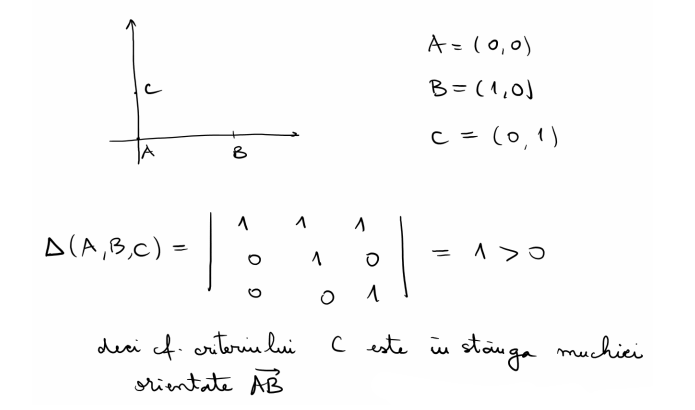 A = (0,0)
B = (1,0)
C = (0,1)
C
A
B
Δ(A,B,C) = | 1 1 1 | = 1 > 0
| 0 1 0 |
| 0 0 1 |
deci cf. criteriului C este în stânga muchiei
orientate AB→